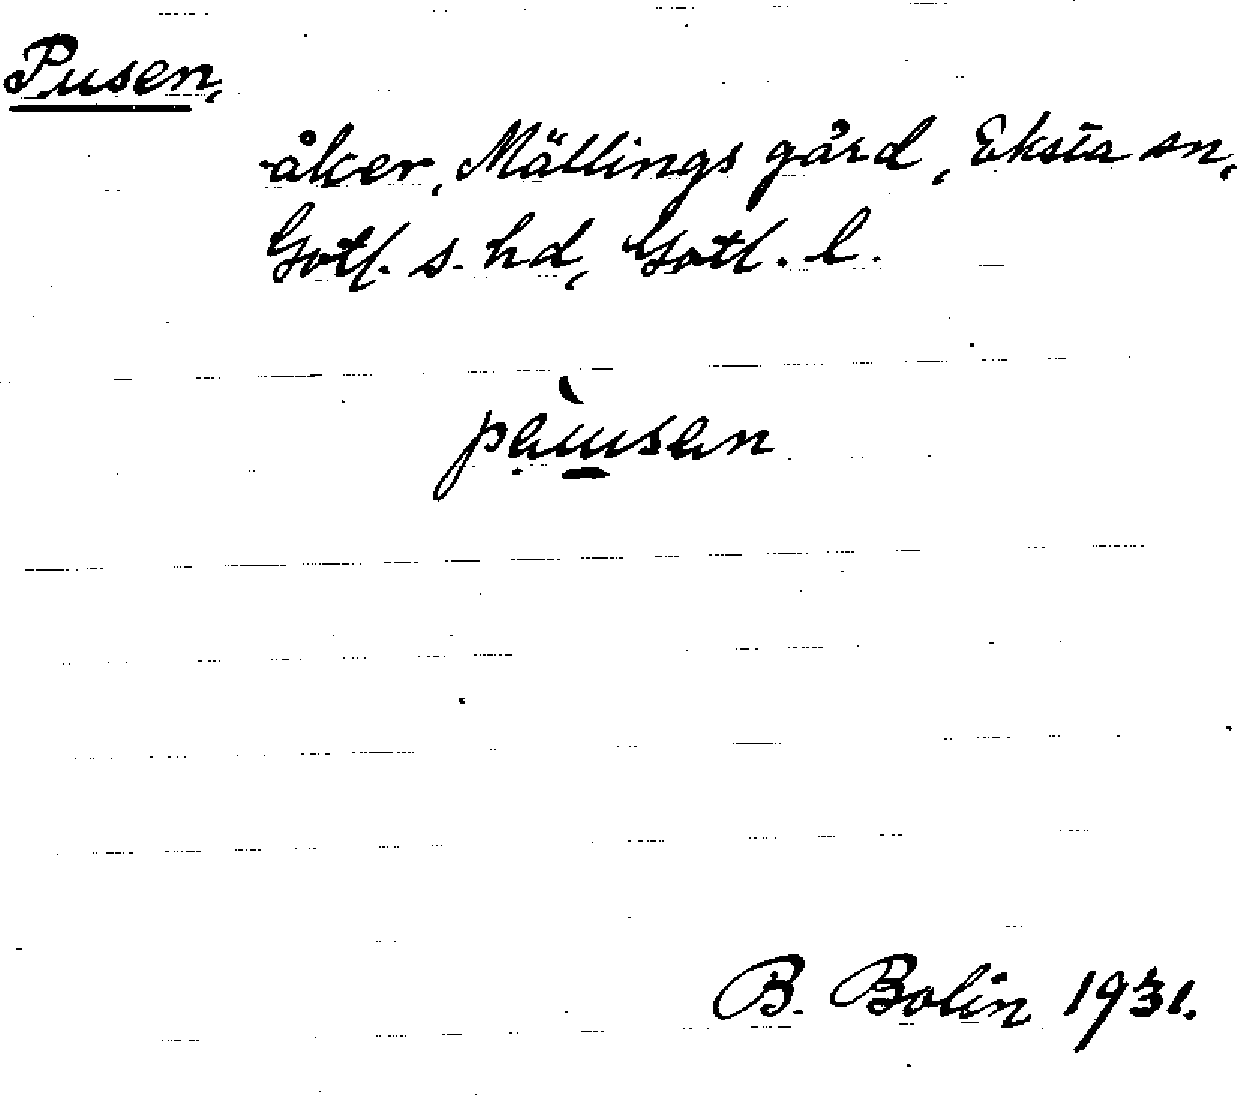 Pusen,
åker, Mällings gård, Eksta sn,
Gotl. s. hd, Gotl. l.
B. Bolin 1931.